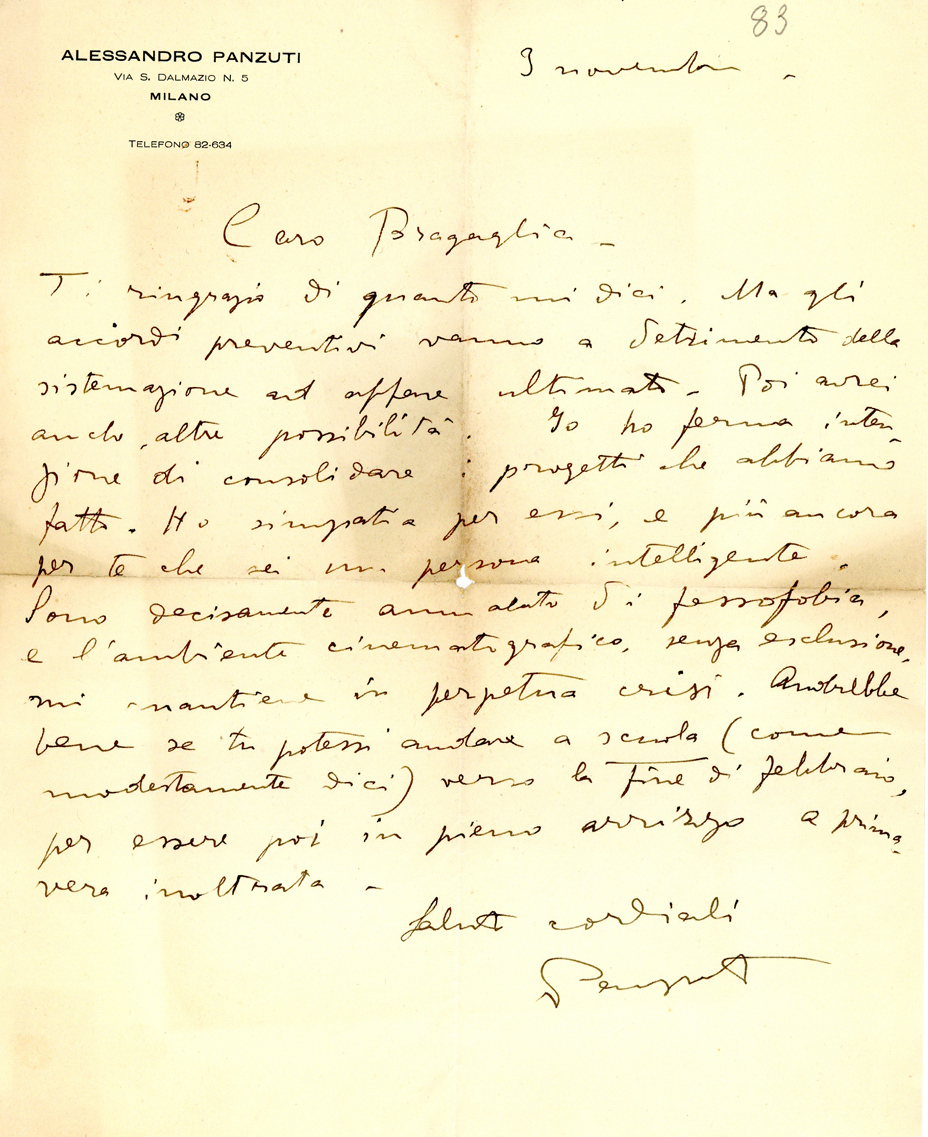 83
ALESSANDRO PANZUTI
VIA S. DALMAZIO N. 5
MILANO
TELEFONO 82-634
3 novembre -
Caro Bragaglia -
Ti ringrazio di quanto mi dici. Ma gli
accordi preventivi vanno a detrimento della
sistemazione ad affare ultimato - Poi avrei
anche altre possibilità. Io ho ferma inten-
zione di consolidare i progetti che abbiamo
fatto. Ho simpatia per essi, e più ancora
per te che sei una persona intelligente.
Sono decisamente ammalato di fessofobia,
e l'ambiente cinematografico, senza esclusione,
mi mantiene in perpetua crisi. Andrebbe
bene se tu potessi andare a scuola (come
modestamente dici) verso la fine di febbraio,
per essere poi in pieno arrizzo a prima-
vera inoltrata -
Saluti cordiali
Panzuti